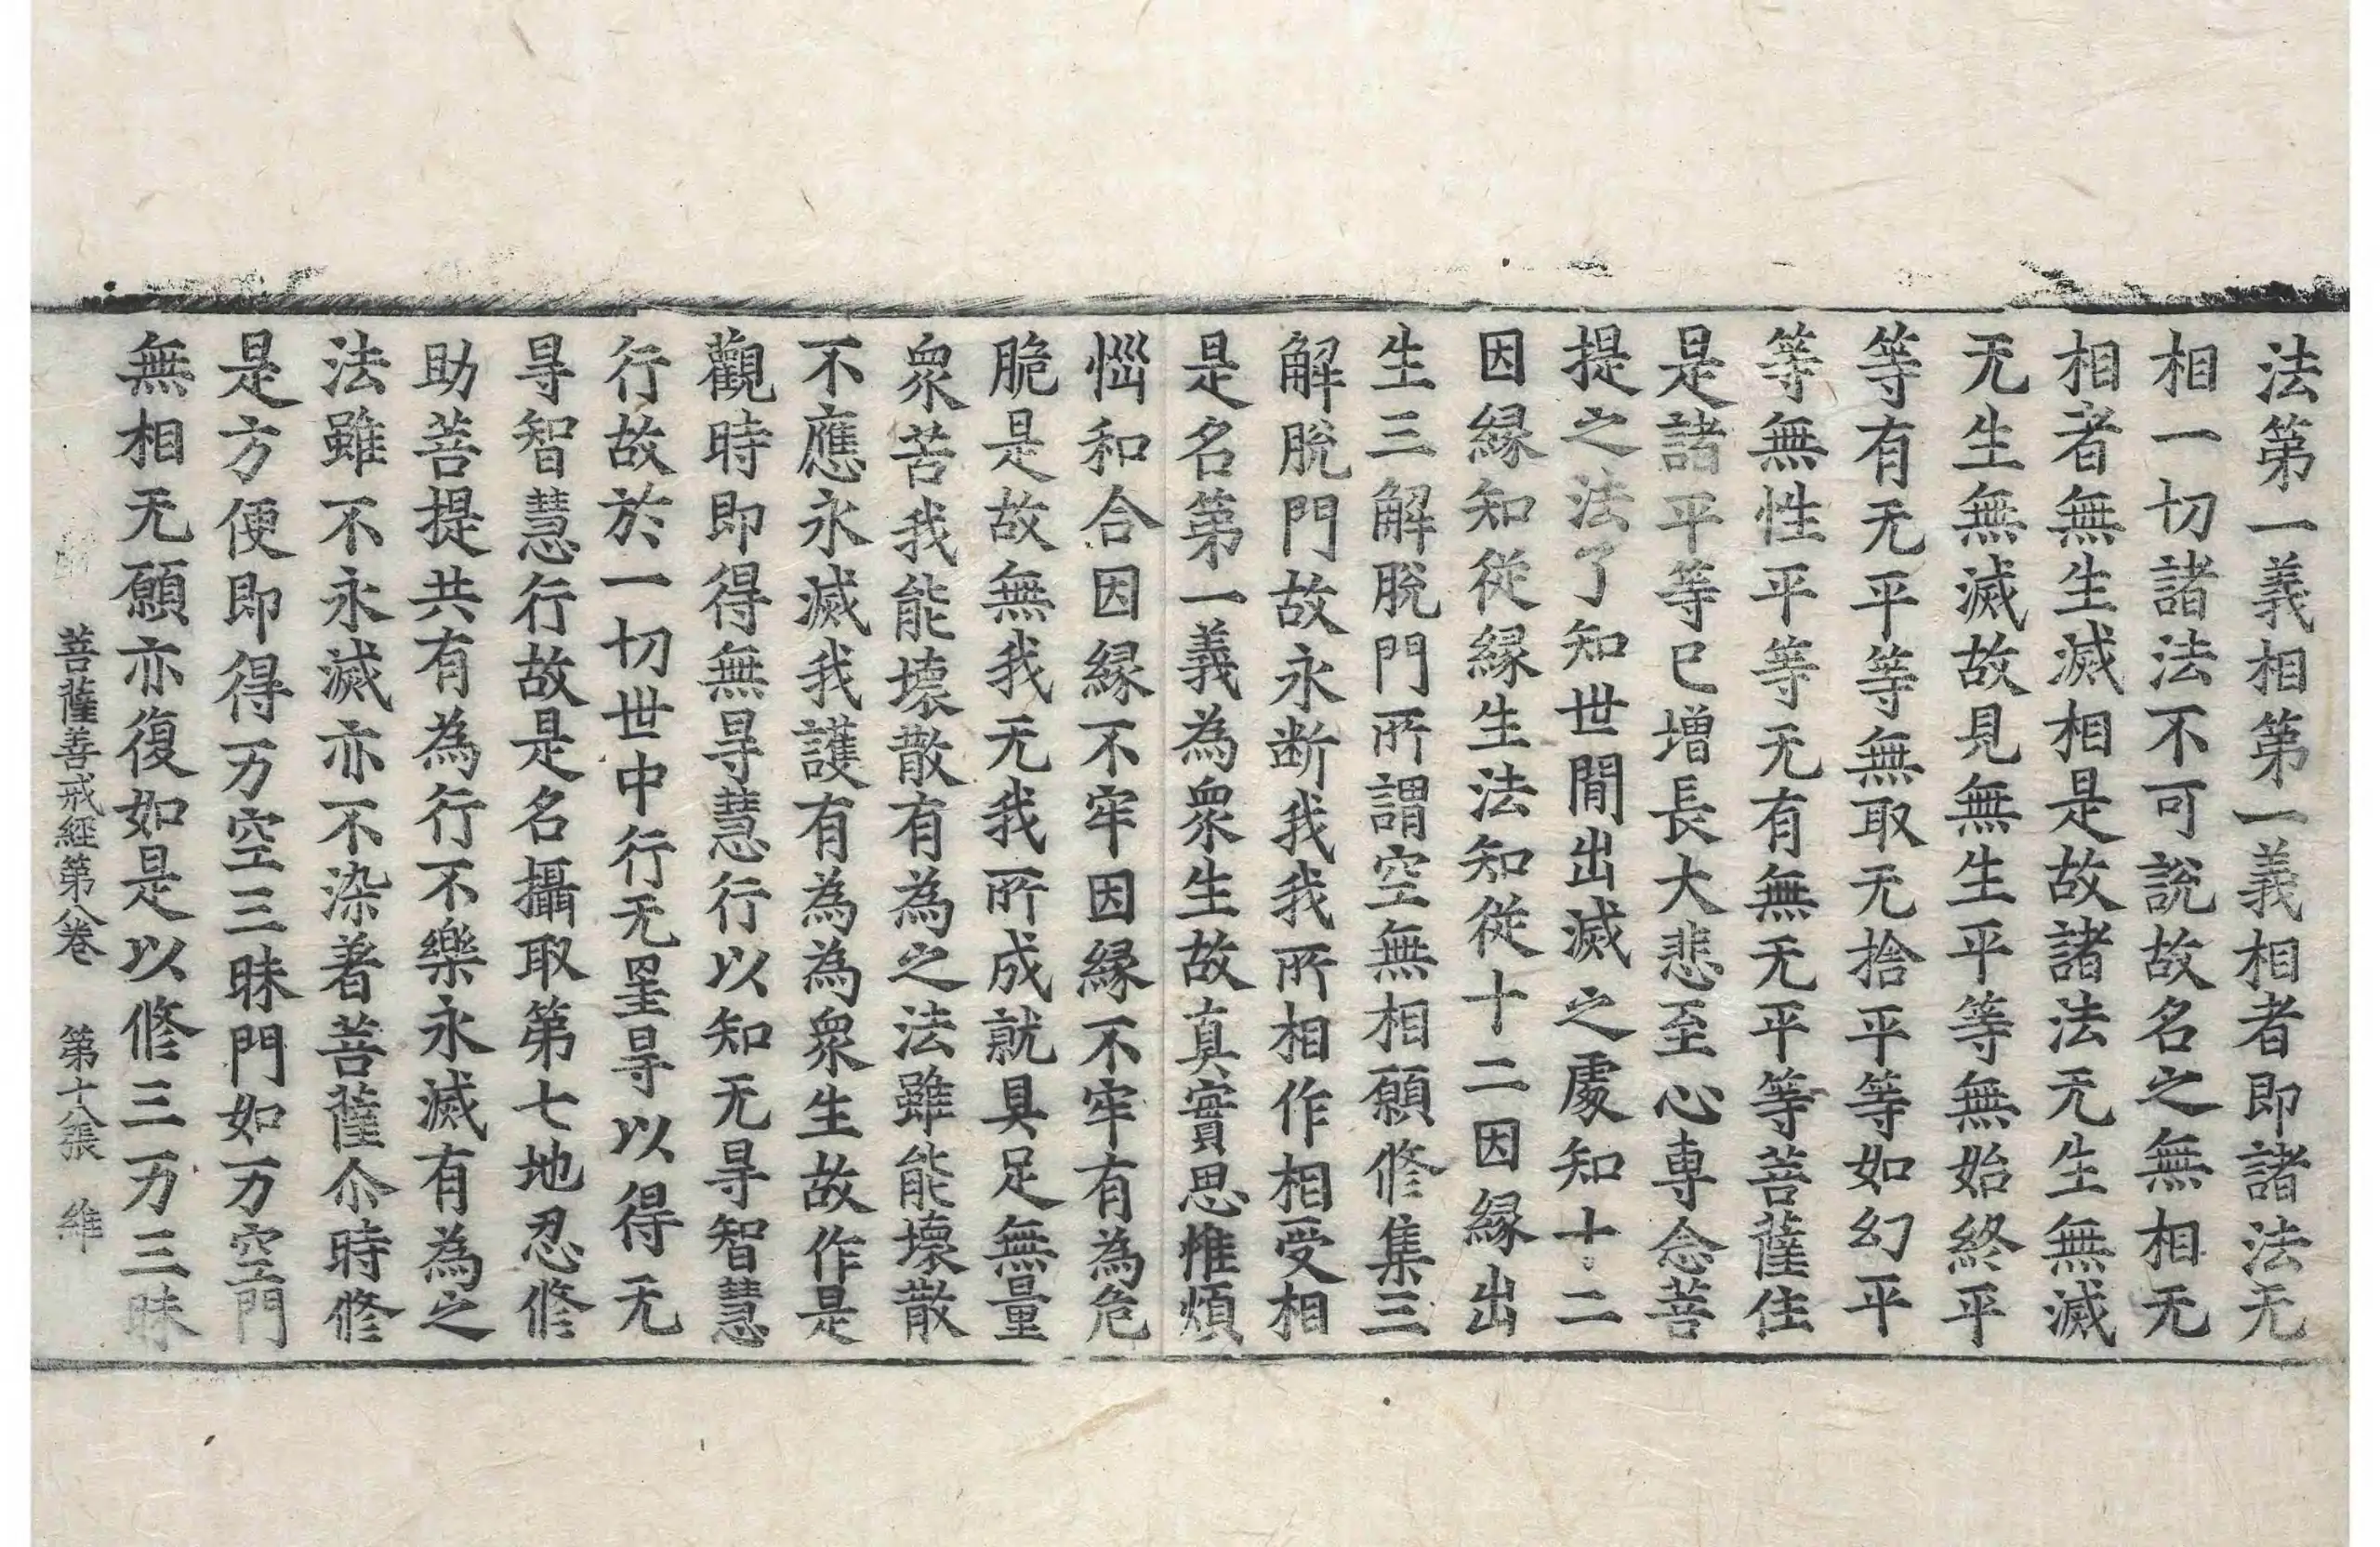 法第一義相第一義相者即諸法无
相一切諸法不可說故名之無相无
相者無生滅相是故諸法无生無滅
无生無滅故見無生平等無始終平
等有无平等無取无捨平等如幻平
等無性平等无有無无平等菩薩住
是諸平等已增長大悲至心專念菩
提之法了知世間出滅之處知十二
因縁知從縁生法知從十二因縁出
生三解脫門所謂空無相願修集三
解脫門故永断我我所相作相受相
是名第一義為衆生故真實思惟煩
惱和合因縁不牢因縁不牢有為危
脆是故無我无我所成就具足無量
衆苦我能壞散有為之法雖能壞散
不應永滅我護有為為衆生故作是
觀時即得無㝵慧行以知无㝵智慧
行故於一切世中行无罣㝵以得无
㝵智慧行故是名攝取第七地忍修
助菩提共有為行不樂永滅有為之
法雖不永滅亦不染著菩薩尒時修
是方便即得万空三昧門如万空門
無相无願亦復如是以修三万三昧
菩薩善戒經第八卷 第十八張 維